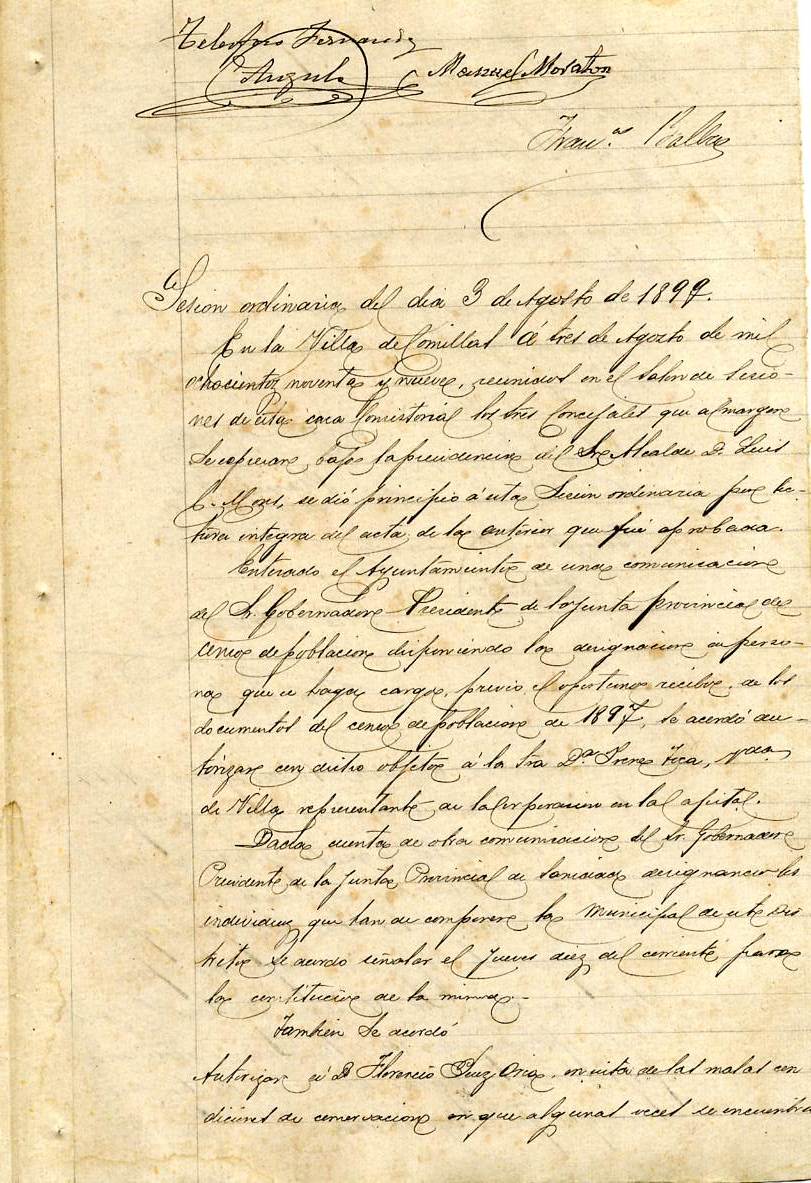 Telesforo Fernandez
Angulo Manuel Moraton
Fran.co
Sesion ordinaria del dia 3 de Agosto de 1899.
En la Villa de Comillas á tres de Agosto de mil
ochocientos noventa y nueve, reunidos en el Salon de Sesio-
nes de esta casa Consistorial los tres Concejales que al margen
se espresan, bajo la presidencia del Sr. Alcalde D. Luis
C. Mons, se dió principio á esta Sesion ordinaria por lec-
tura integra del acta de la anterior que fué aprobada.
Enterado el Ayuntamiento de una comunicacion
del Sr. Gobernador Presidente de la Junta provincial del
censo de poblacion disponiendo la designacion de perso-
na que se haga cargo, previo el oportuno recibo, de los
documentos del censo de poblacion de 1897, se acordó au-
torizar con dicho objeto á la Sra Dª. Irene Toca, Vda
de Villa representante de la Corporacion en la Capital.
Dada cuenta de otra comunicacion del Sr. Gobernador
Presidente de la Junta Provincial de Sanidad designando los
individuos que han de componer la Municipal de este Dis
trito se acordó señalar el Jueves diez del corriente para
la constitucion de la misma.-
Tambien Se acordó
Autorizar á D. Florencio Ruiz Oria, en vista de las malas con
diciones de conservacion en que algunas veces se encuentra